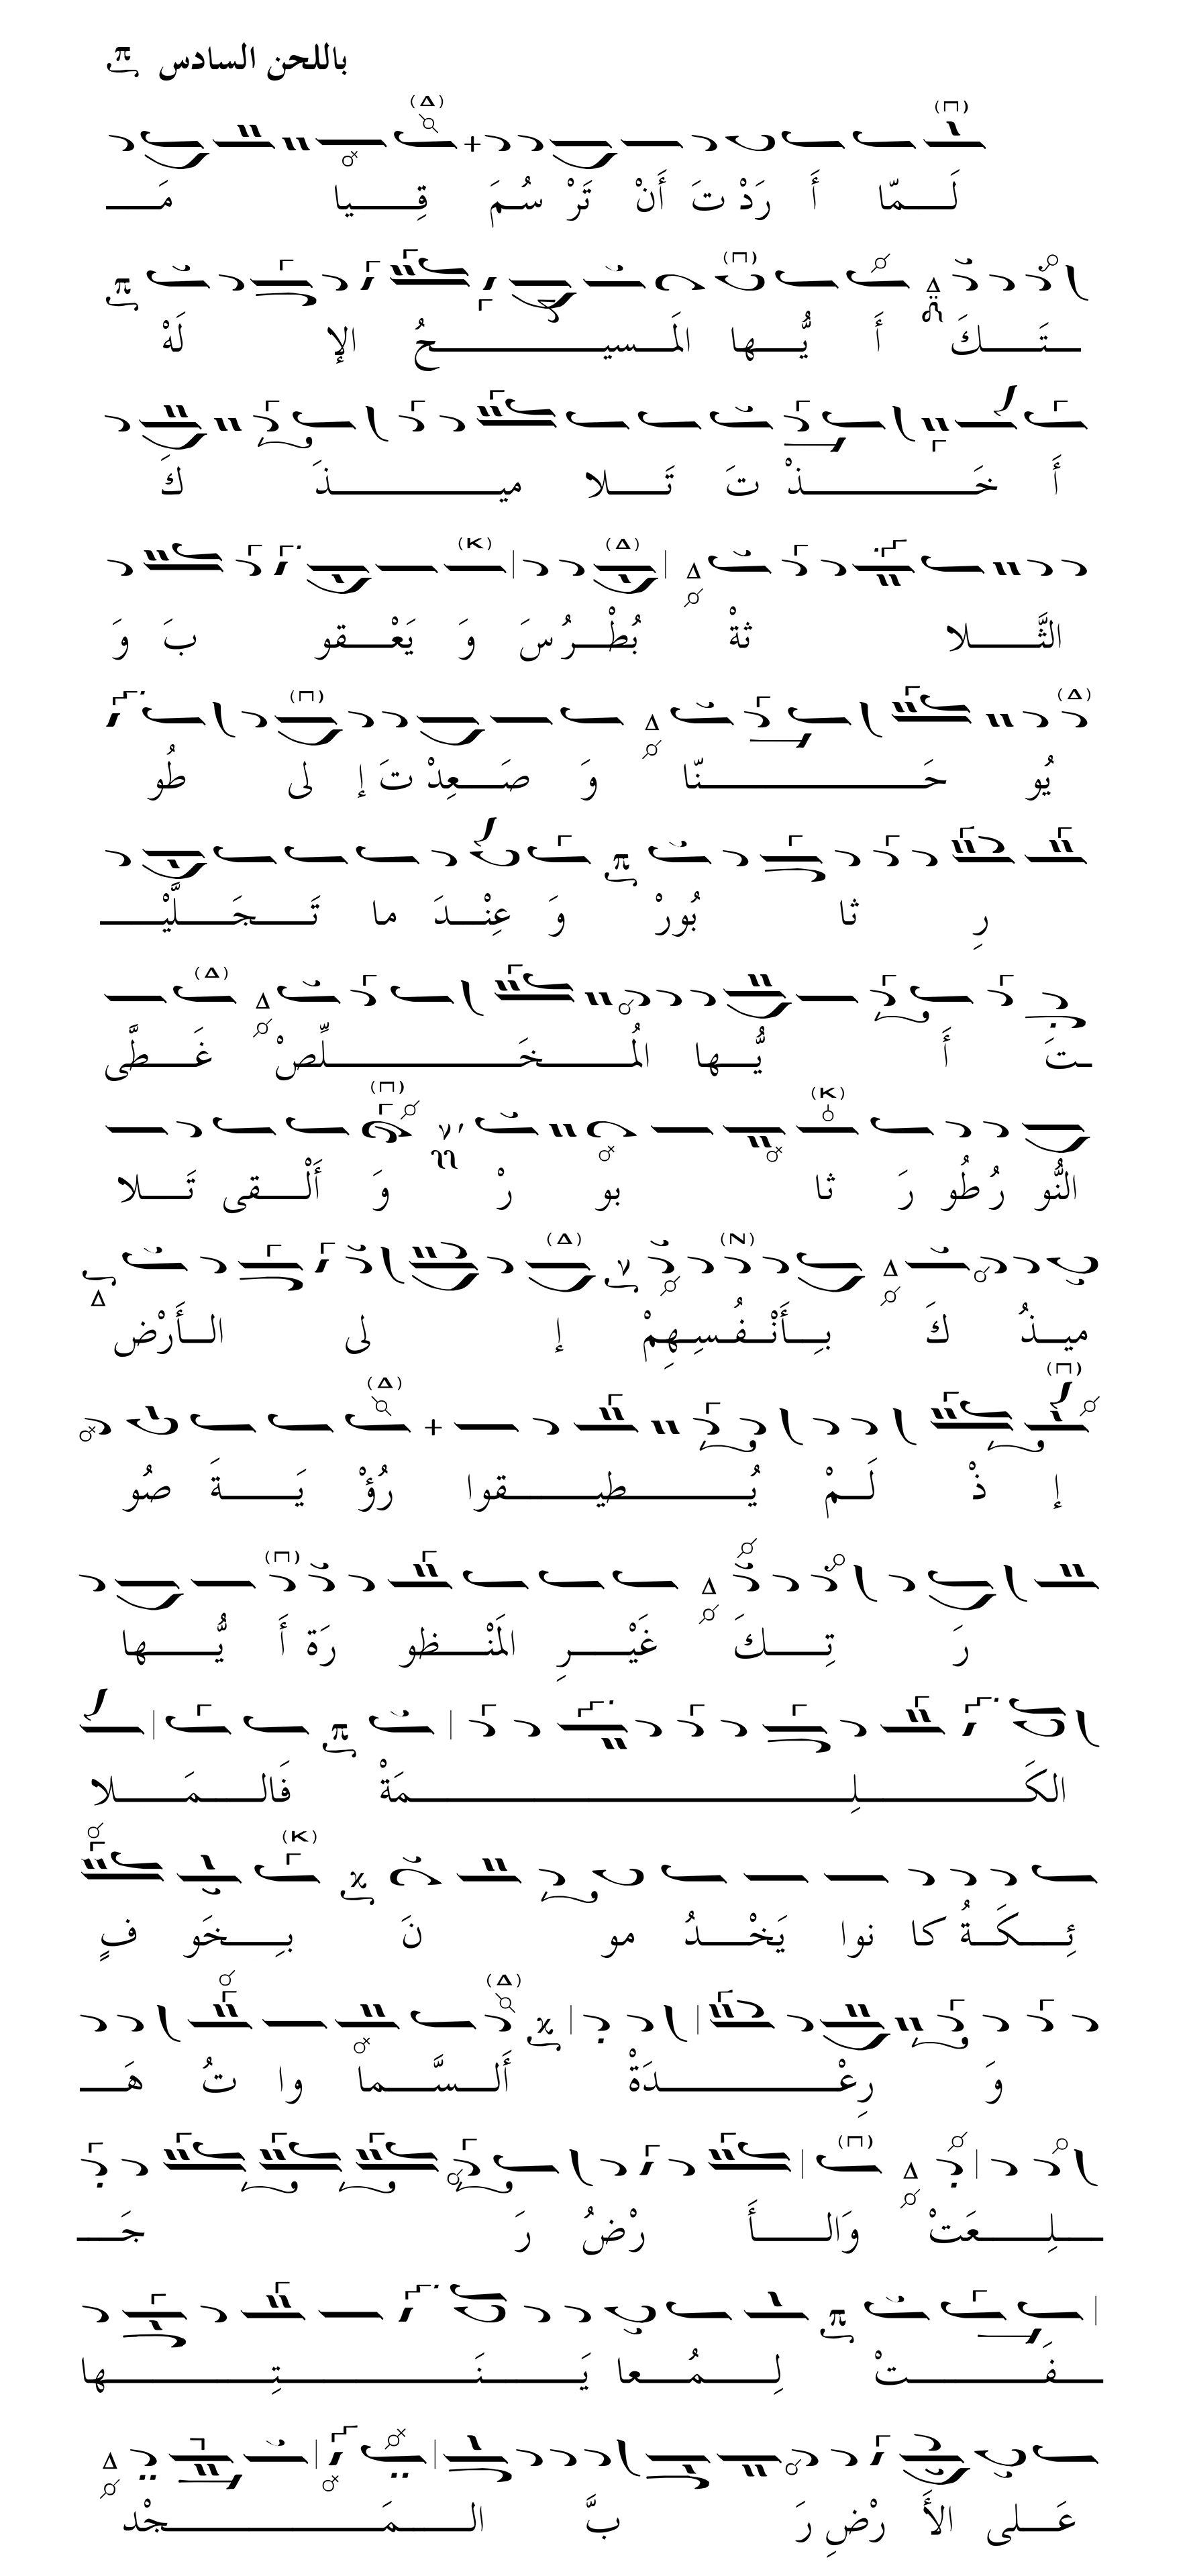 باللحن السادس
لَـــمّا أَ رَدْ تَ أَنْ تَرْ سُـمَ قِـــيا مَـــ
ـتَـــكَ أَ يُّـــها المَـسيـــحُ الإ لَهْ
أَ خَـــذْ تَ تَـــلا ميـــذَ كَ
الثَّـــلا ثةْ بُطْـــرُسَ وَ يَعْـــقو بَ وَ
يُو حَـــنّا وَ صَـــعِدْ تَ إ لى طُو
رِ ثا بُورْ وَ عِنْـــدَ ما تَـــجَـــلَّيْـــ
ـتَ أَ يُّـــها المُـــخَـــلِّصْ غَـــطَّى
النُّو رُ طُو رَ ثا بو رْ وَ أَلْـــقى تَـــلا
ميـــذُ كَ بِـــأَنْـــفُـسِـهِمْ إ لى الـــأَرْض
إ ذْ لَـــمْ يُـــطيـــقوا رُؤْ يَـــةَ صُو
رَ تِـــكَ غَيْـــرِ المَنْـــظو رَة أَ يُّـــها
الكَـــلِـــمَةْ فَالـــمَـــلا
ئِـــكَـــةُ كا نوا يَخْـــدُ مو نَ بِـــخَو فٍ
وَ رِعْـــدَةْ أَلـــسَّـــما وا تُ هَـــ
ـلِـــعَتْ وَالـــأَ رْضُ رَ جَـــ
ـفَـــتْ لِـــمُـــعا يَـــنَـــتِـــها
عَـــلى الأَ رْضِ رَ بَّ الـــمَـــجْد